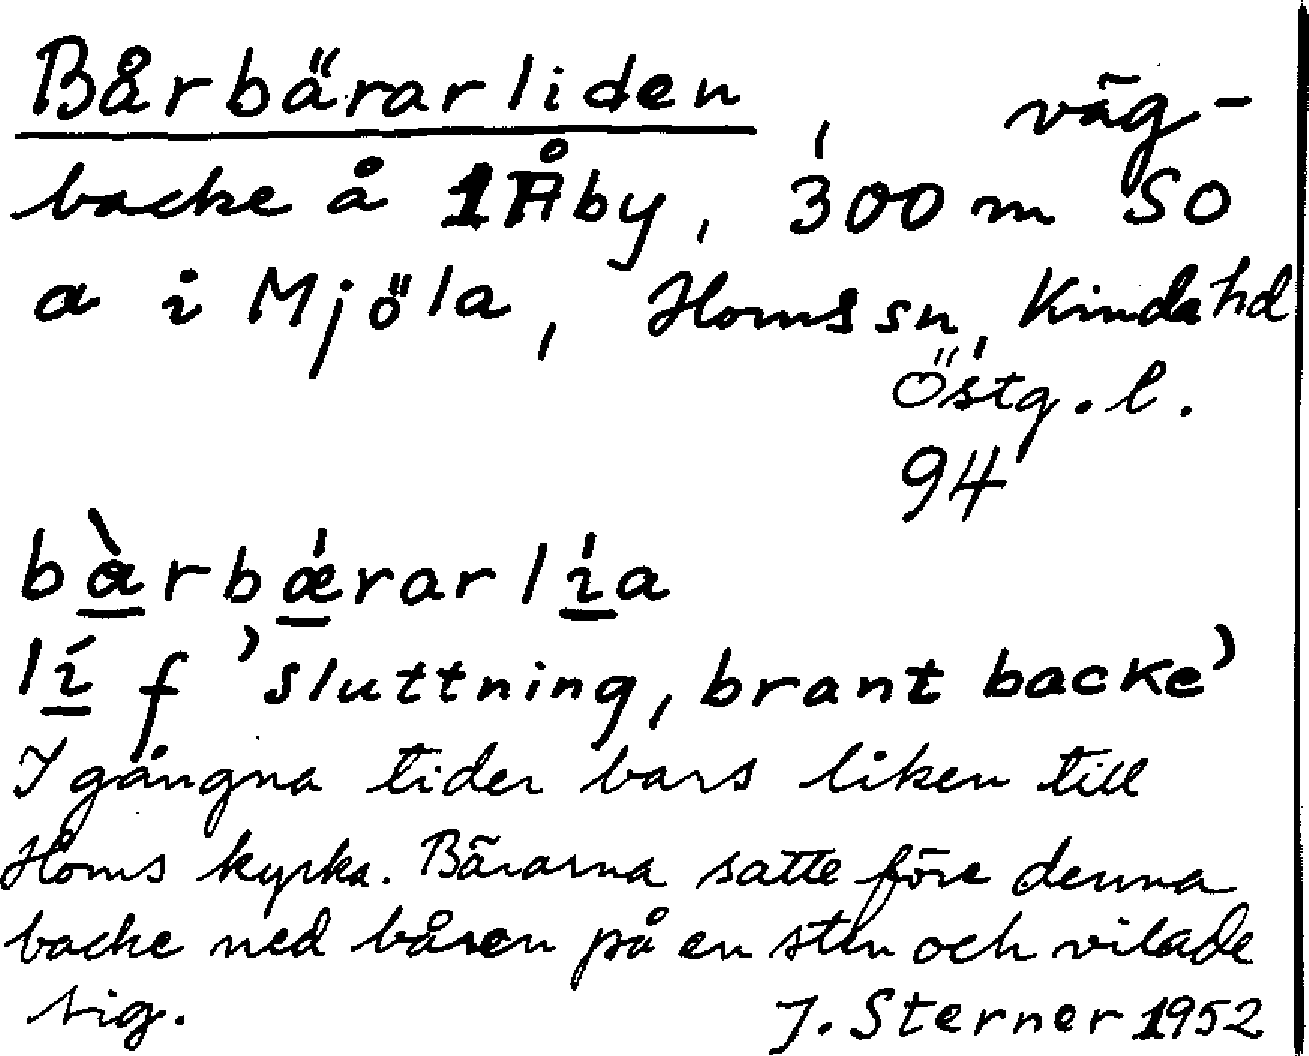 Bårbärarliden, väg-
backe å 1 Åby, 300 m SO
a i Mjöla, Horns sn, Kinda hd
Östg. l.
94
bàrbǽrarlía
lí f 'sluttning, brant backe'
I gångna tider bars liken till
Horns kyrka. Bärarna satte före denna
backe ned båren på en sten och vilade
sig. J. Sterner 1952